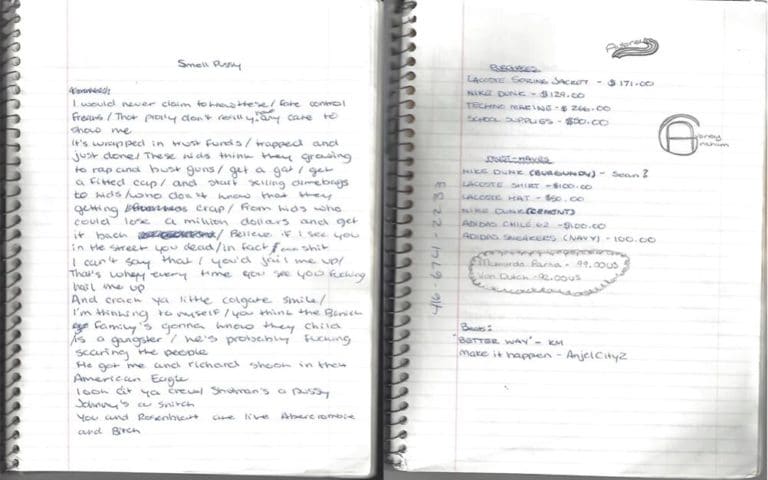 Smell Pussy
I would never claim to know these / fate control
freaks / That prolly don't really even care to
show me
It's wrapped in trust funds / trapped and
just done / These kids think they growing
to rap and bust guns / get a gat / get
a fitted cap / and start selling dimebags
to kids / who don't know that they
getting crap / From kids who
could lose a million dollars and get
it back / Believe if I see you
in the street you dead / in fact shit
I can't say that / you'd jail me up /
That's why every time you see you fucking
hail me up
And crack ya little colgate smile /
I'm thinking to myself / you think the
family's gonna know they child
is a gangster / he's probably fucking
scaring the people
He got me and richard shook in their
American Eagle
Look at ya crew / Shulman's a pussy
Johnny's a snitch
You and Rosenblatt are like Abercrombie
and Bitch
PURCHASES
LACOSTE SPRING JACKET - $171.00
NIKE DUNK - $129.00
TECHNO MARINE - $266.00
SCHOOL SUPPLIES - $50.00
Aubrey
Graham
MUST-HAVES
NIKE DUNK (BURGUNDY) - Sean?
LACOSTE SHIRT - $100.00
LACOSTE HAT - $50.00
NIKE DUNK
ADIDAS CHILE 62 - $100.00
ADIDAS SNEAKERS (NAVY) - 100.00
99.00US
Von Dutch - 92.00US
Beats:
"BETTER WAY" - KM
Make it happen - AnjelCity2